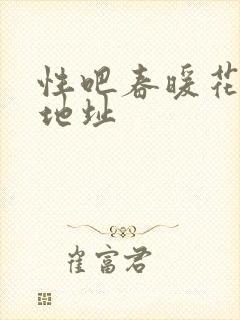 性吧春暖花
地址
崔富君